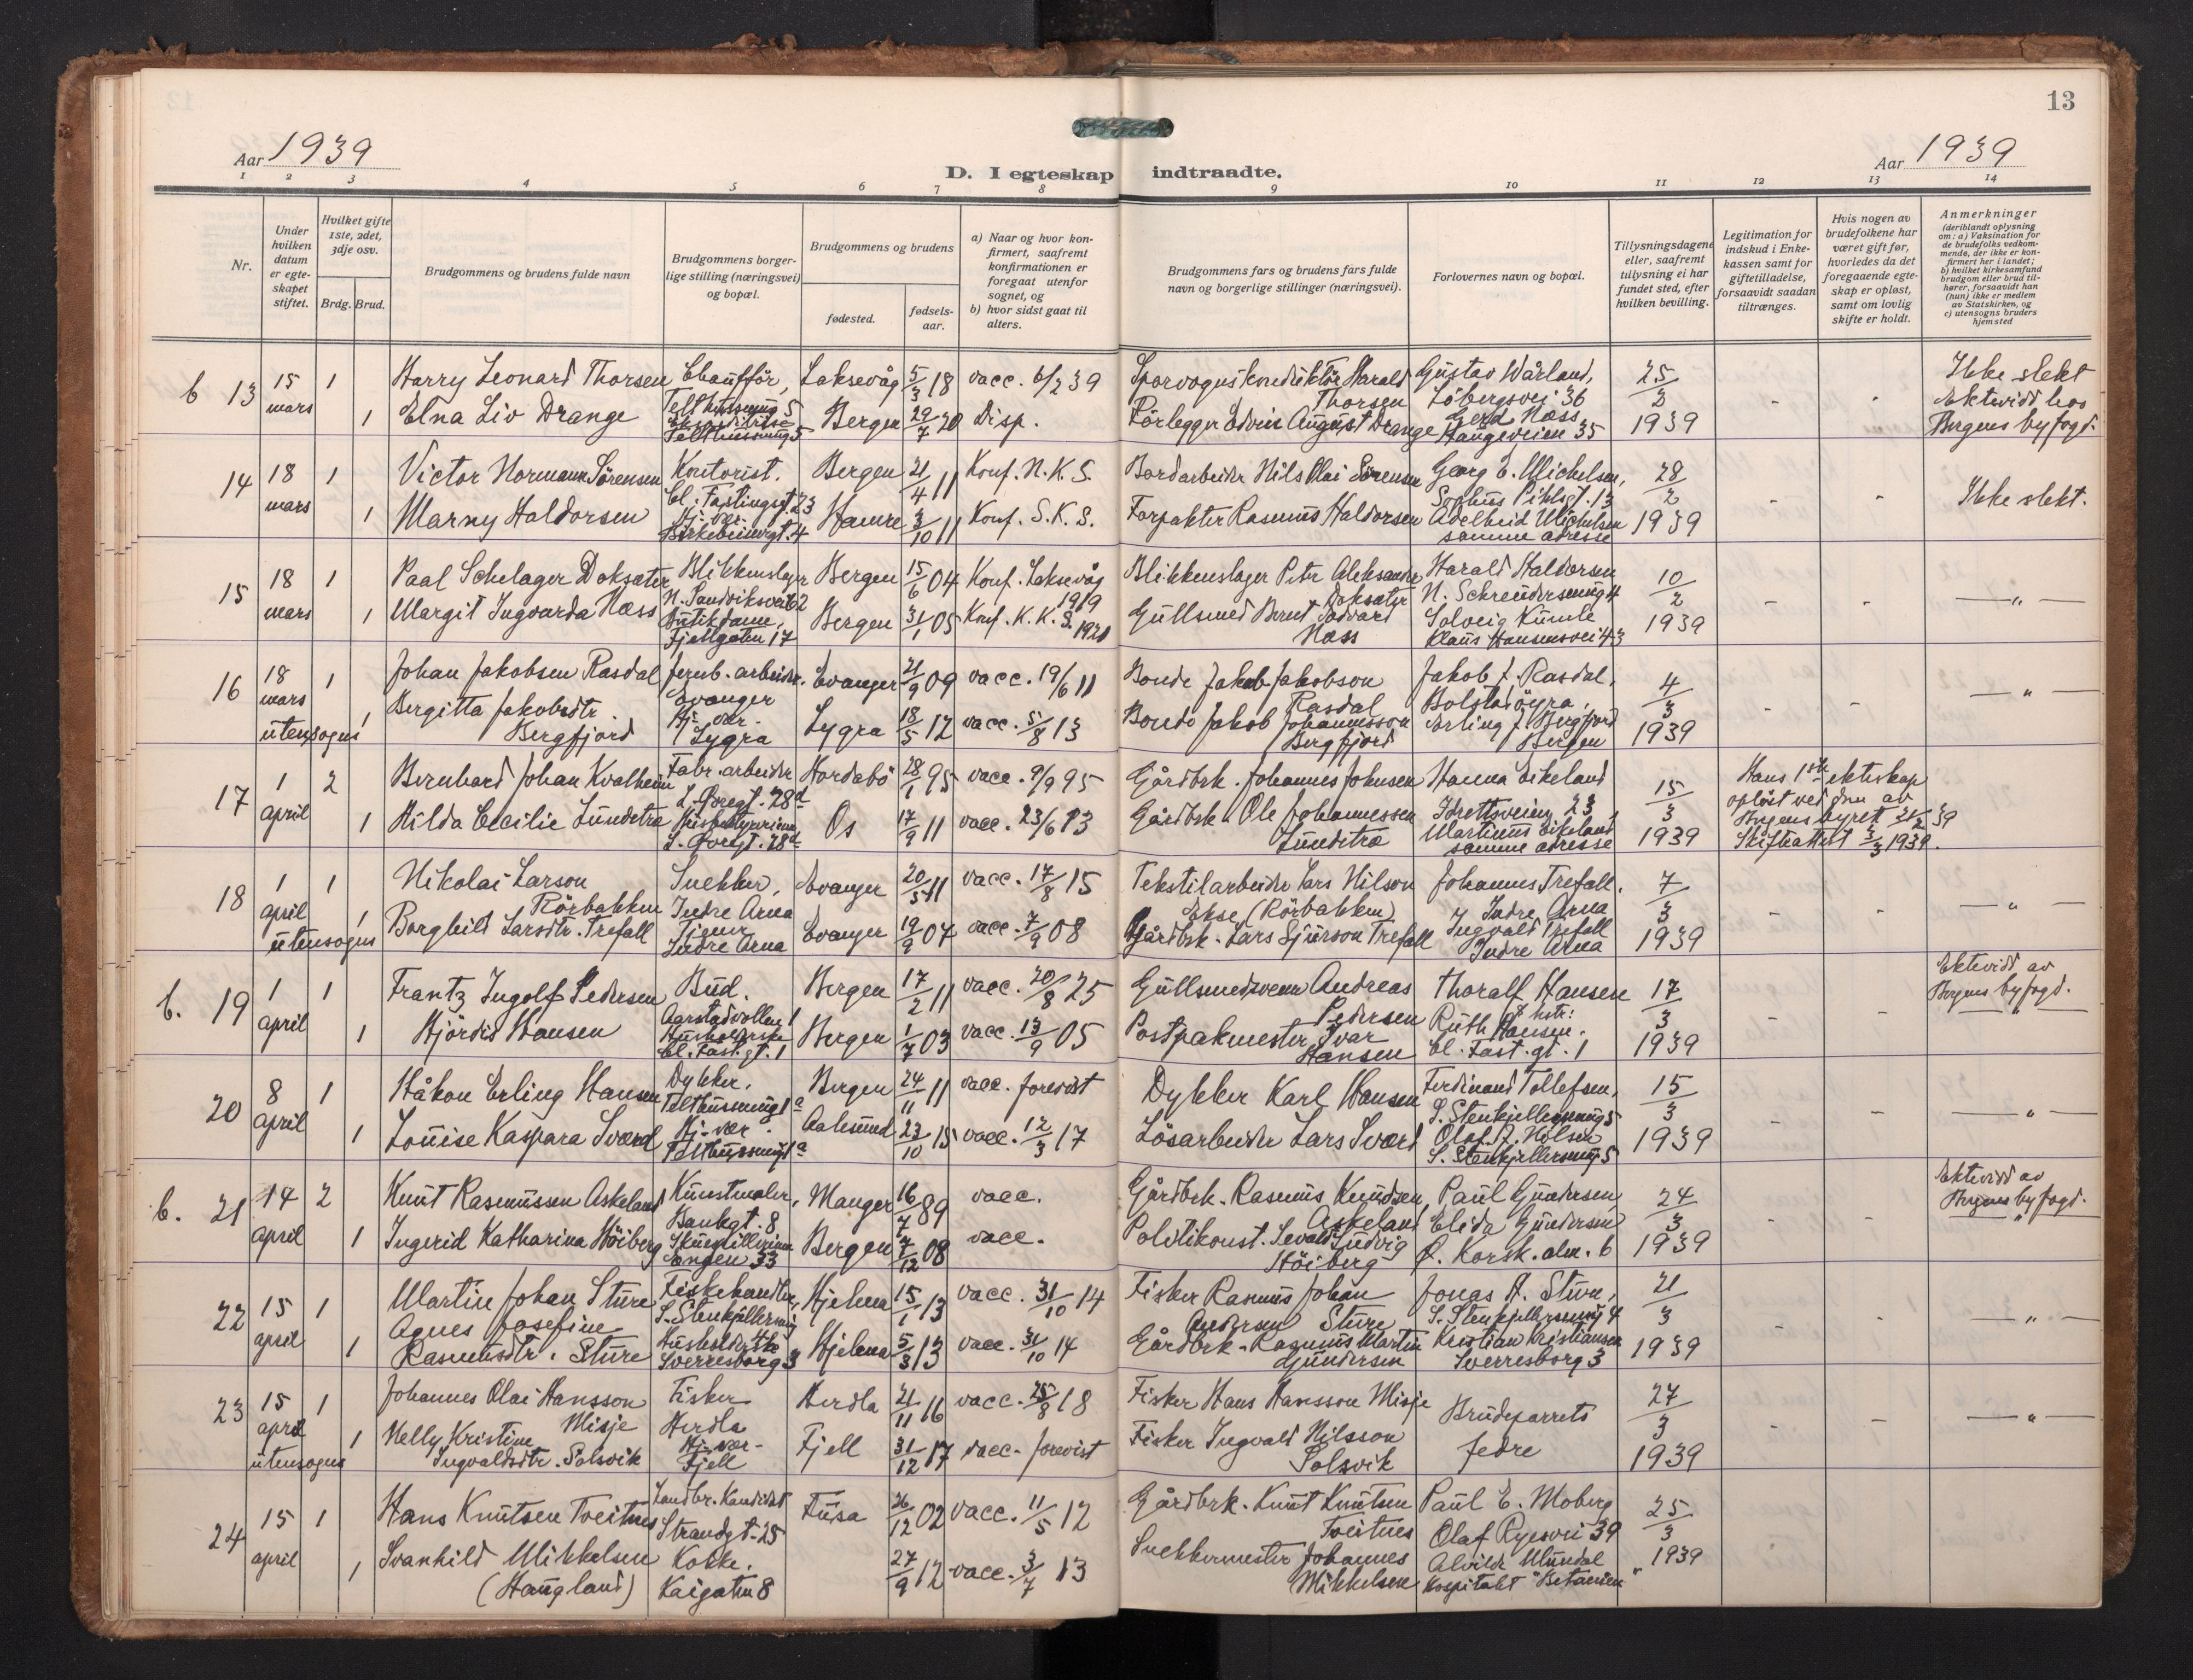 13
Aar 1939
Aar 1939
D. I egteskap indtraadte.
1 2 3 4 5 6 7 8 9 10 11 12 13 14
Nr.
Under hvilken datum er egteskapet stiftet.
Hvilket gifte 1ste, 2det, 3dje osv.
Brdg. Brud.
Brudgommens og brudens fulde navn
Brudgommens borgerlige stilling (næringsvei) og bopæl.
Brudgommens og brudens
fødested.
fødselsaar.
a) Naar og hvor konfirmert, saafremt konfirmationen er foregaat utenfor sognet, og
b) hvor sidst gaat til alters.
Brudgommens fars og brudens fars fulde navn og borgerlige stillinger (næringsvei).
Forlovernes navn og bopæl.
Tillysningsdagene eller, saafremt tillysning ei har fundet sted, efter hvilken bevilling.
Legitimation for indskud i Enkekassen samt for giftetilladelse, forsaavidt saadan tiltrænges.
Hvis nogen av brudefolkene har været gift før, hvorledes da det foregaaende egteskap er opløst, samt om lovlig skifte er holdt.
Anmerkninger
(deriblandt oplysning om: a) Vaksination for de brudefolks vedkommende, der ikke er konfirmert her i landet;
b) hvilket kirkesamfund brudgom eller brud tilhører, forsaavidt han (hun) ikke er medlem av Statskirken, og
c) utensogns bruders hjemsted
b 13 15 mars 1 Harry Leonard Thorsen Chaufför, Telthussmug 5 Laksevåg 5/3 18 vacc. 6/2 39 Sporvognskonduktör Harald Thorsen Gustav Wårland, Löbergsvei 36 25/3 1939 Ikke slekt
1 Elna Liv Drange Telthussmug 5 Bergen 29/7 20 Disp. Rörlegger Edvin August Drange Gerd Næss Haugeveien 35 Ektevidd hos Bergens byfogd.
14 18 mars 1 Victor Normann Sörensen Kontorist. Cl. Fastingsgt. 23 Bergen 21/4 11 Konf. N.K.S. Bordarbeider Nils Olai Sörensen Georg E. Michelsen, Sophus Pihlsgt. 13 28/2 1939 Ikke slekt.
1 Marny Haldorsen Hj. vær. Birkebeinergt. 4 Hamre 3/10 11 Konf. S.K.S. Forpakter Rasmus Haldorsen Adelheid Michelsen samme adresse
15 18 mars 1 Paal Schelager Doksæter Blikkenslager N. Sandviksvei 62 Bergen 15/6 04 Konf. Laksevåg 1919 Blikkenslager Peter Aleksander Doksæter Harald Haldorsen N. Schreudersmug 4 10/2 1939 — " —
1 Margit Ingvarda Næss Butikdame, Fjellgaten 17 Bergen 3/1 05 Konf. K.K.S. 1920 Gullsmed Bernt Edvard Næss Solveig Kumle Klaus Hansensvei 43
16 18 mars utensogns 1 Johan Jakobsen Rasdal Jernb. arbeider. Evanger Evanger 21/9 09 vacc. 19/6 11 Bonde Jakob Jakobson Rasdal Jakob J. Rasdal, Bolstadöyra, 4/3 1939 — " —
1 Bergitta Jakobsdtr. Bergfjord Hj. vær. Lygra Lygra 18/5 12 vacc. 5/8 13 Bonde Jakob Johannesson Bergfjord Erling J. Bergfjord Bergen
17 1 april 2 Bernhard Johan Kvalheim Fabr. arbeider L. Övregt. 28d Hordabö 28/1 95 vacc. 9/9 95 Gårdbrk. Johannes Johnsen Hanna Eikeland Idrettsveien 23, 15/3 1939 Hans 1ste ekteskap oplöst ved dom av Bergens byret 21/2 39 Skifteattest 3/3 1939.
1 Hilda Cecilie Lundetræ L. Övregt. 28d Os 17/9 11 vacc. 23/6 13 Gårdbrk Ole Johannessen Lundetræ Martinus Eikeland samme adresse
18 1 april utensogns 1 Nikolai Larson Rörbakken Snekker, Indre Arna Evanger 20/5 11 vacc. 17/8 15 Tekstilarbeider Lars Nilson Ekse (Rörbakken) Johannes Trefall, Indre Arna 7/3 1939 — " —
1 Borghild Larsdtr. Trefall Indre Arna Evanger 19/9 07 vacc. 7/9 08 Gårdbrk. Lars Sjurson Trefall Ingvald Trefall Indre Arna
b. 19 1 april 1 Frantz Ingolf Pedersen Bud. Aarstadvollen 1 Bergen 17/2 11 vacc. 20/8 25 Gullsmedsvenn Andreas Pedersen Thoralf Hansen & hstr: 17/3 1939 Ektevidd av Bergens byfogd.
1 Hjördis Hansen Husholderske Cl. Fast. gt. 1 Bergen 1/7 03 vacc. 13/9 05 Postpakmester Ivar Hansen Ruth Hansen. Cl. Fast. gt. 1
20 8 april 1 Håkon Erling Hansen Dykker. Telthussmug 1a Bergen 24/11 11 vacc. forevist Dykker Karl Hansen Ferdinand Tollefsen, S. Stenkjellersmug 5 15/3 1939 — " —
1 Louise Kaspara Sværd Hj-vær. Telthussmug 1a Aalesund 23/10 15 vacc. 12/3 17 Lösarbeider Lars Sværd Olaf A. Nilsen S. Stenkjellersmug 5
b. 21 14 april 2 Knut Rasmussen Askeland Kunstmaler, Bankgt. 8 Manger 16/7 89 vacc. Gårdbrk. Rasmus Knudsen Askeland Paul Gundersen 24/3 1939 Ektevidd av Bergens byfogd.
1 Ingerid Katharina Höiberg Skuespillerinne Engen 33 Bergen 7/12 08 vacc. Politikonst. Sevald Ludvig Höiberg Elida Gundersen Ø. Korsk. alm. 6
22 15 april 1 Martin Johan Sture Fiskehandler, S. Stenkjellersmug Hjelma 15/1 13 vacc. 31/10 14 Fisker Rasmus Johan Andersen Sture Jonas A. Sture, S. Stenkjellersmug 4 21/3 1939 — " —
1 Agnes Josefine Rasmusdtr. Sture Husholderske Sverresborg 3 Hjelma 5/3 13 vacc. 31/10 14 Gårdbrk. Rasmus Martin Gundersen Kristian Kristiansen Sverresborg 3
23 15 april utensogns 1 Johannes Olai Hansson Misje Fisker Herdla Herdla 21/11 16 vacc. 25/8 18 Fisker Hans Hansson Misje Brudeparrets fedre 27/3 1939 — " —
1 Nelly Kristine Ingvaldsdtr. Solsvik Hj-vær- Fjell Fjell 31/12 17 vacc- forevist Fisker Ingvald Nilsson Solsvik
24 15 april 1 Hans Knutsen Tveitnes Landbr. Kandidat Strandgt. 25 Fusa 26/12 02 vacc. 11/5 12 Gårdbrk. Knut Knutsen Tveitnes Paul E. Moberg Olaf Ryesvei 39 25/3 1939
1 Svanhild Mikkelsen (Haugland) Kokke. Kaigaten 8 27/9 12 vacc. 3/7 13 Snekkermester Johannes Mikkelsen Alvilde Mundal Hospitalet "Betanien"